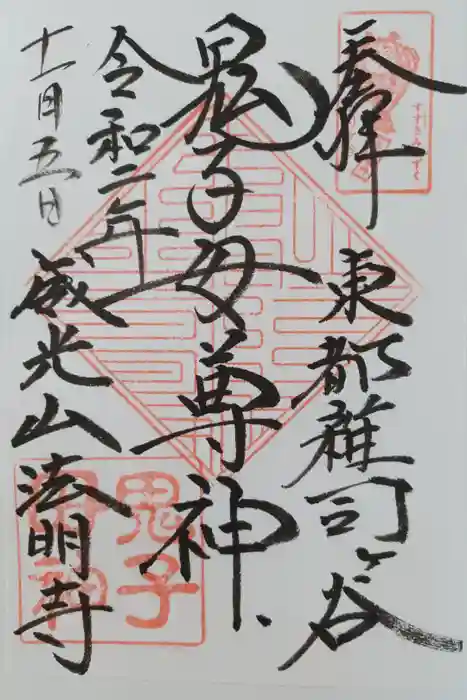 奉拝
東都雑司ヶ谷
鬼子母尊神
令和二年
十一月五日
威光山法明寺
鬼子
母神